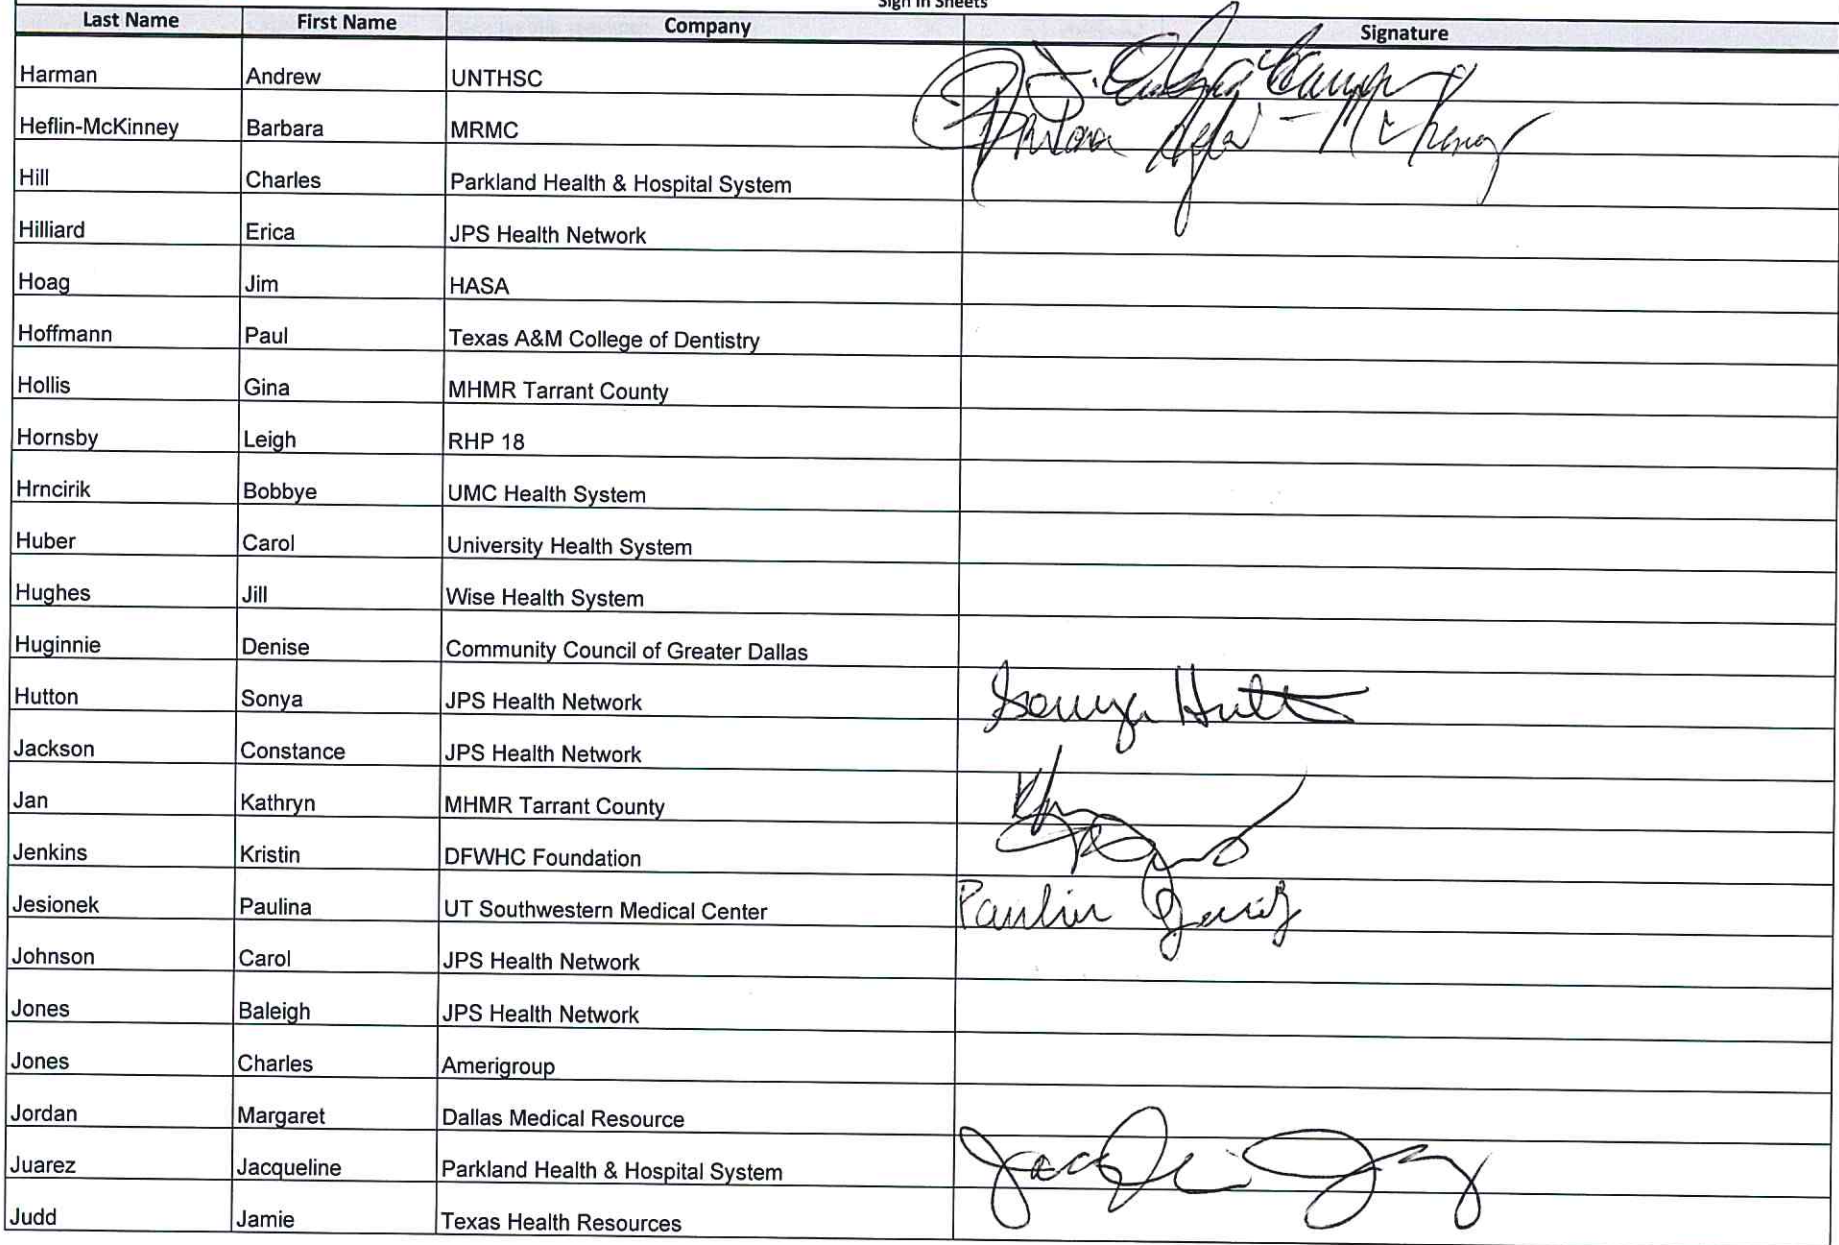 Sign In Sheets
Last Name First Name Company Signature
Harman Andrew UNTHSC
Heflin-McKinney Barbara MRMC
Hill Charles Parkland Health & Hospital System
Hilliard Erica JPS Health Network
Hoag Jim HASA
Hoffmann Paul Texas A&M College of Dentistry
Hollis Gina MHMR Tarrant County
Hornsby Leigh RHP 18
Hrncirik Bobbye UMC Health System
Huber Carol University Health System
Hughes Jill Wise Health System
Huginnie Denise Community Council of Greater Dallas
Hutton Sonya JPS Health Network Sonya Hutt
Jackson Constance JPS Health Network
Jan Kathryn MHMR Tarrant County
Jenkins Kristin DFWHC Foundation
Jesionek Paulina UT Southwestern Medical Center
Johnson Carol JPS Health Network
Jones Baleigh JPS Health Network
Jones Charles Amerigroup
Jordan Margaret Dallas Medical Resource
Juarez Jacqueline Parkland Health & Hospital System
Judd Jamie Texas Health Resources